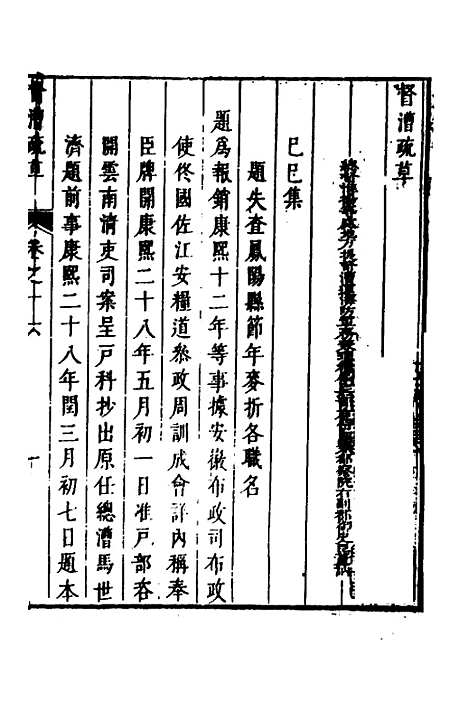 督漕疏草
己巳集
題失查鳳陽縣節年麥折各職名
題為報銷康熙十二年等事據安徽布政司布政
使佟國佐江安糧道叅政周訓成會詳內稱奉
臣牌開康熙二十八年五月初一日准戶部咨
開雲南清吏司案呈戶科抄出原任總漕馬世
濟題前事康熙二十八年閏三月初七日題本
督漕疏草
卷之十六
一